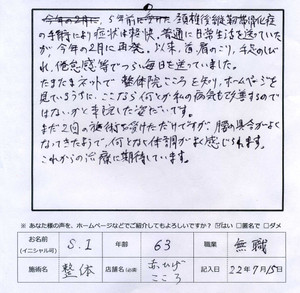 5年前に頚椎後縦靭帯骨化症
の手術により症状は軽快、普通に日常生活を送っていた
が今年の2月に再発。以来、首、肩のこり、手足のしび
れ、倦怠感等でつらい毎日を送っていました。
たまたまネットで整体院こころを知り、ホームページを
見ているうちに、ここなら何とか私の病気も改善するので
はないかと来院した次第です。
まだ2回の施術を受けただけですが、腰の具合がよく
なってきたようで、何となく体調がよく感じられます。
これからの治療に期待しています。
※ あなた様の声を、ホームページなどでご紹介してもよろしいですか? ☑はい □匿名で □ダメ
お名前 (イニシャル可) S.I 年齢 63 職業 無職
施術名 整体 店舗名(必須) 赤ひげ こころ 記入日 22年7月15日